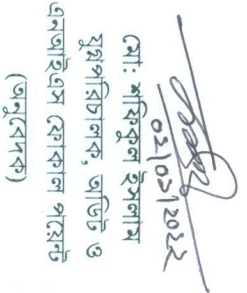 ০১/০১/২০২২
মো: শফিকুল ইসলাম
যুগ্মপরিচালক, অডিট ও
এনআইএস ফোকাল পয়েন্ট
(অনুবেদক)